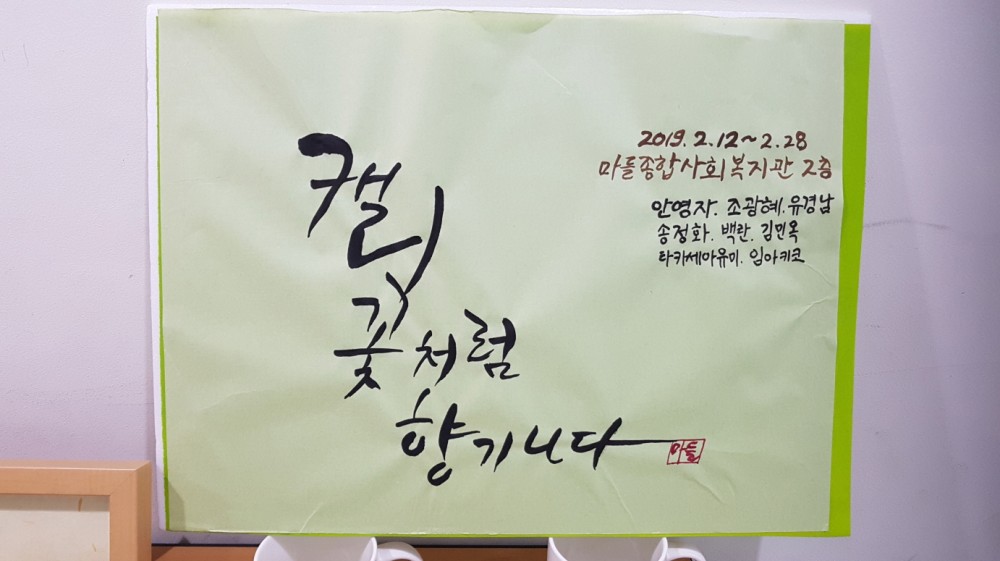 캘리
꽃처럼
향기나다
마들
2019. 2.12~2.28
마들종합사회복지관 2층
안영자. 조광혜. 유경남
송정화. 백란. 김민옥
타카세아유미. 임아키코